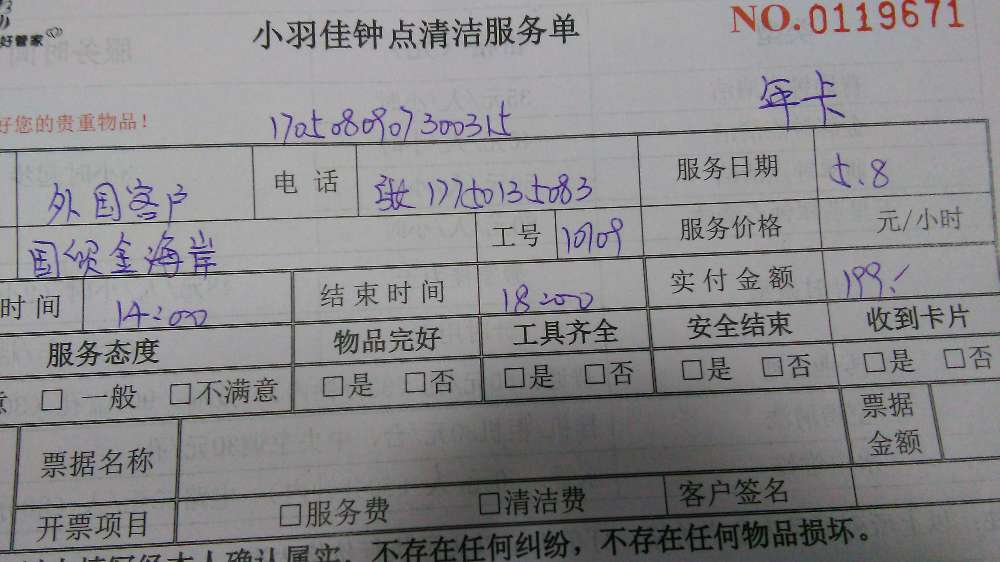 好管家
小羽佳钟点清洁服务单 NO.0119671
好您的贵重物品! 1705080907300315 年卡
外国客户 电 话 17750135083 服务日期 5.8
国贸金海岸 工号 10109 服务价格 元/小时
时间 14:00 结束时间 18:00 实付金额 199.
服务态度 物品完好 工具齐全 安全结束 收到卡片
意 □ 一般 □不满意 □是 □否 □是 □否 □是 □否 □是 □否
票据名称 票据金额
开票项目 □服务费 □清洁费 客户签名
经本人确认属实,不存在任何纠纷,不存在任何物品损坏。